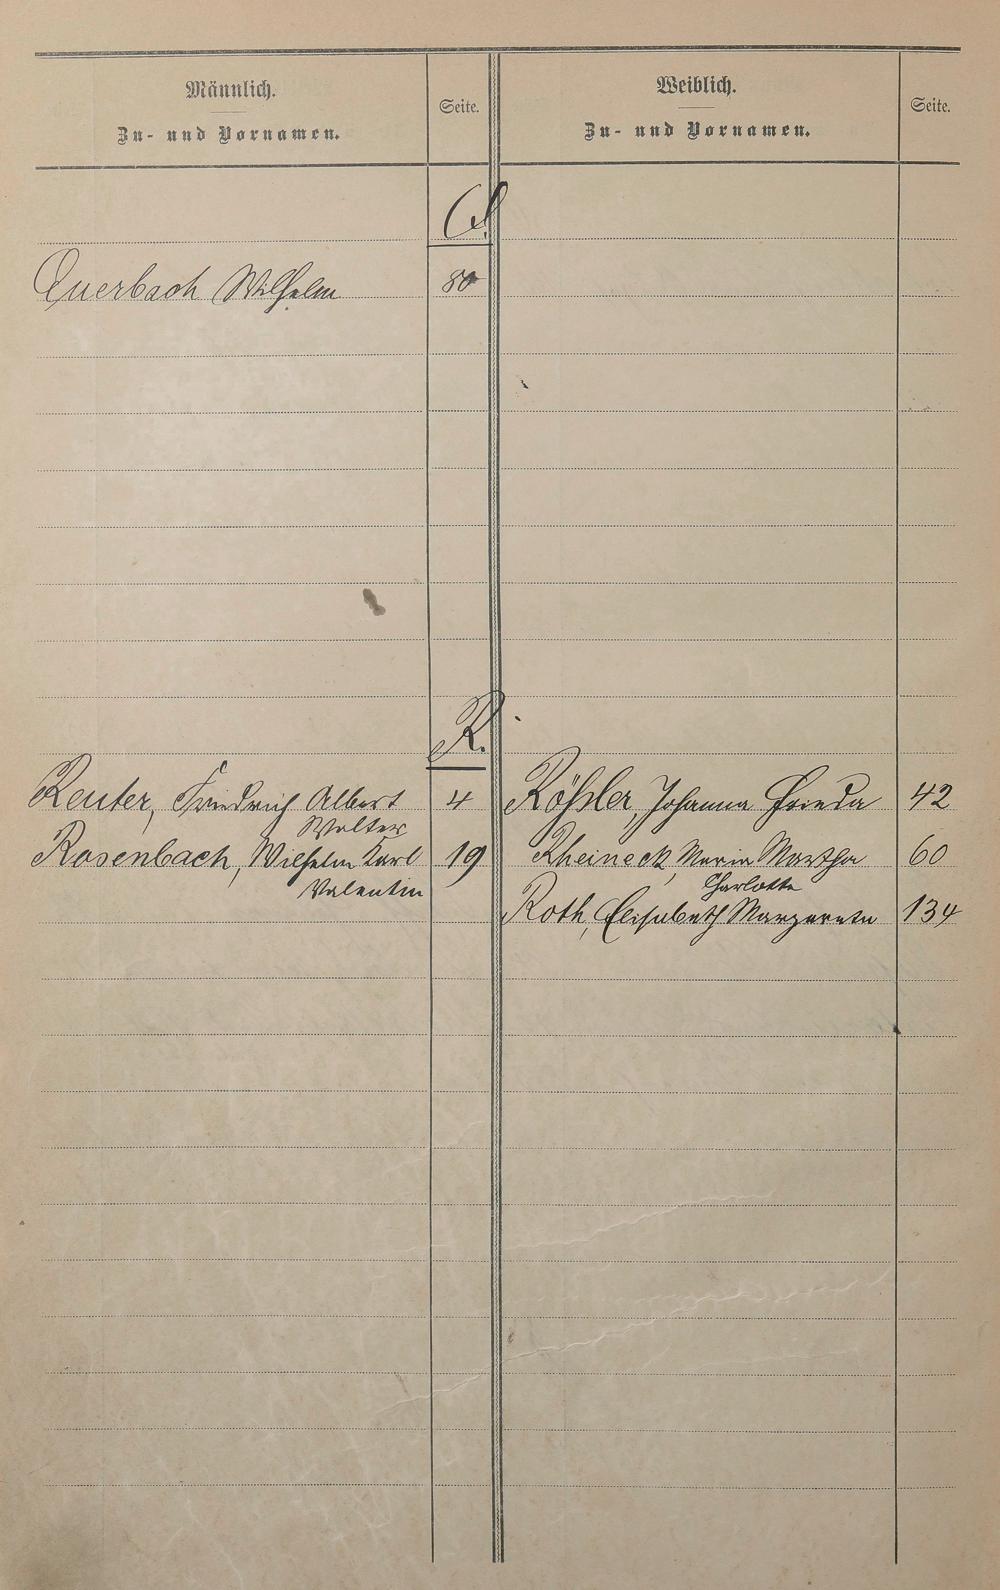 Männlich.
Zu- und Vornamen.
Seite.
Weiblich.
Zu- und Vornamen.
Seite.
Q.
Querbach Wilhelm 80
R.
Reuter, Friedrich Albert 4
Walter
Rosenbach, Wilhelm Karl 19
Valentin
Rößler, Johanna Frieda 42
Rheineck, Maria Martha 60
Charlotte
Roth, Elisabeth Margareta 134